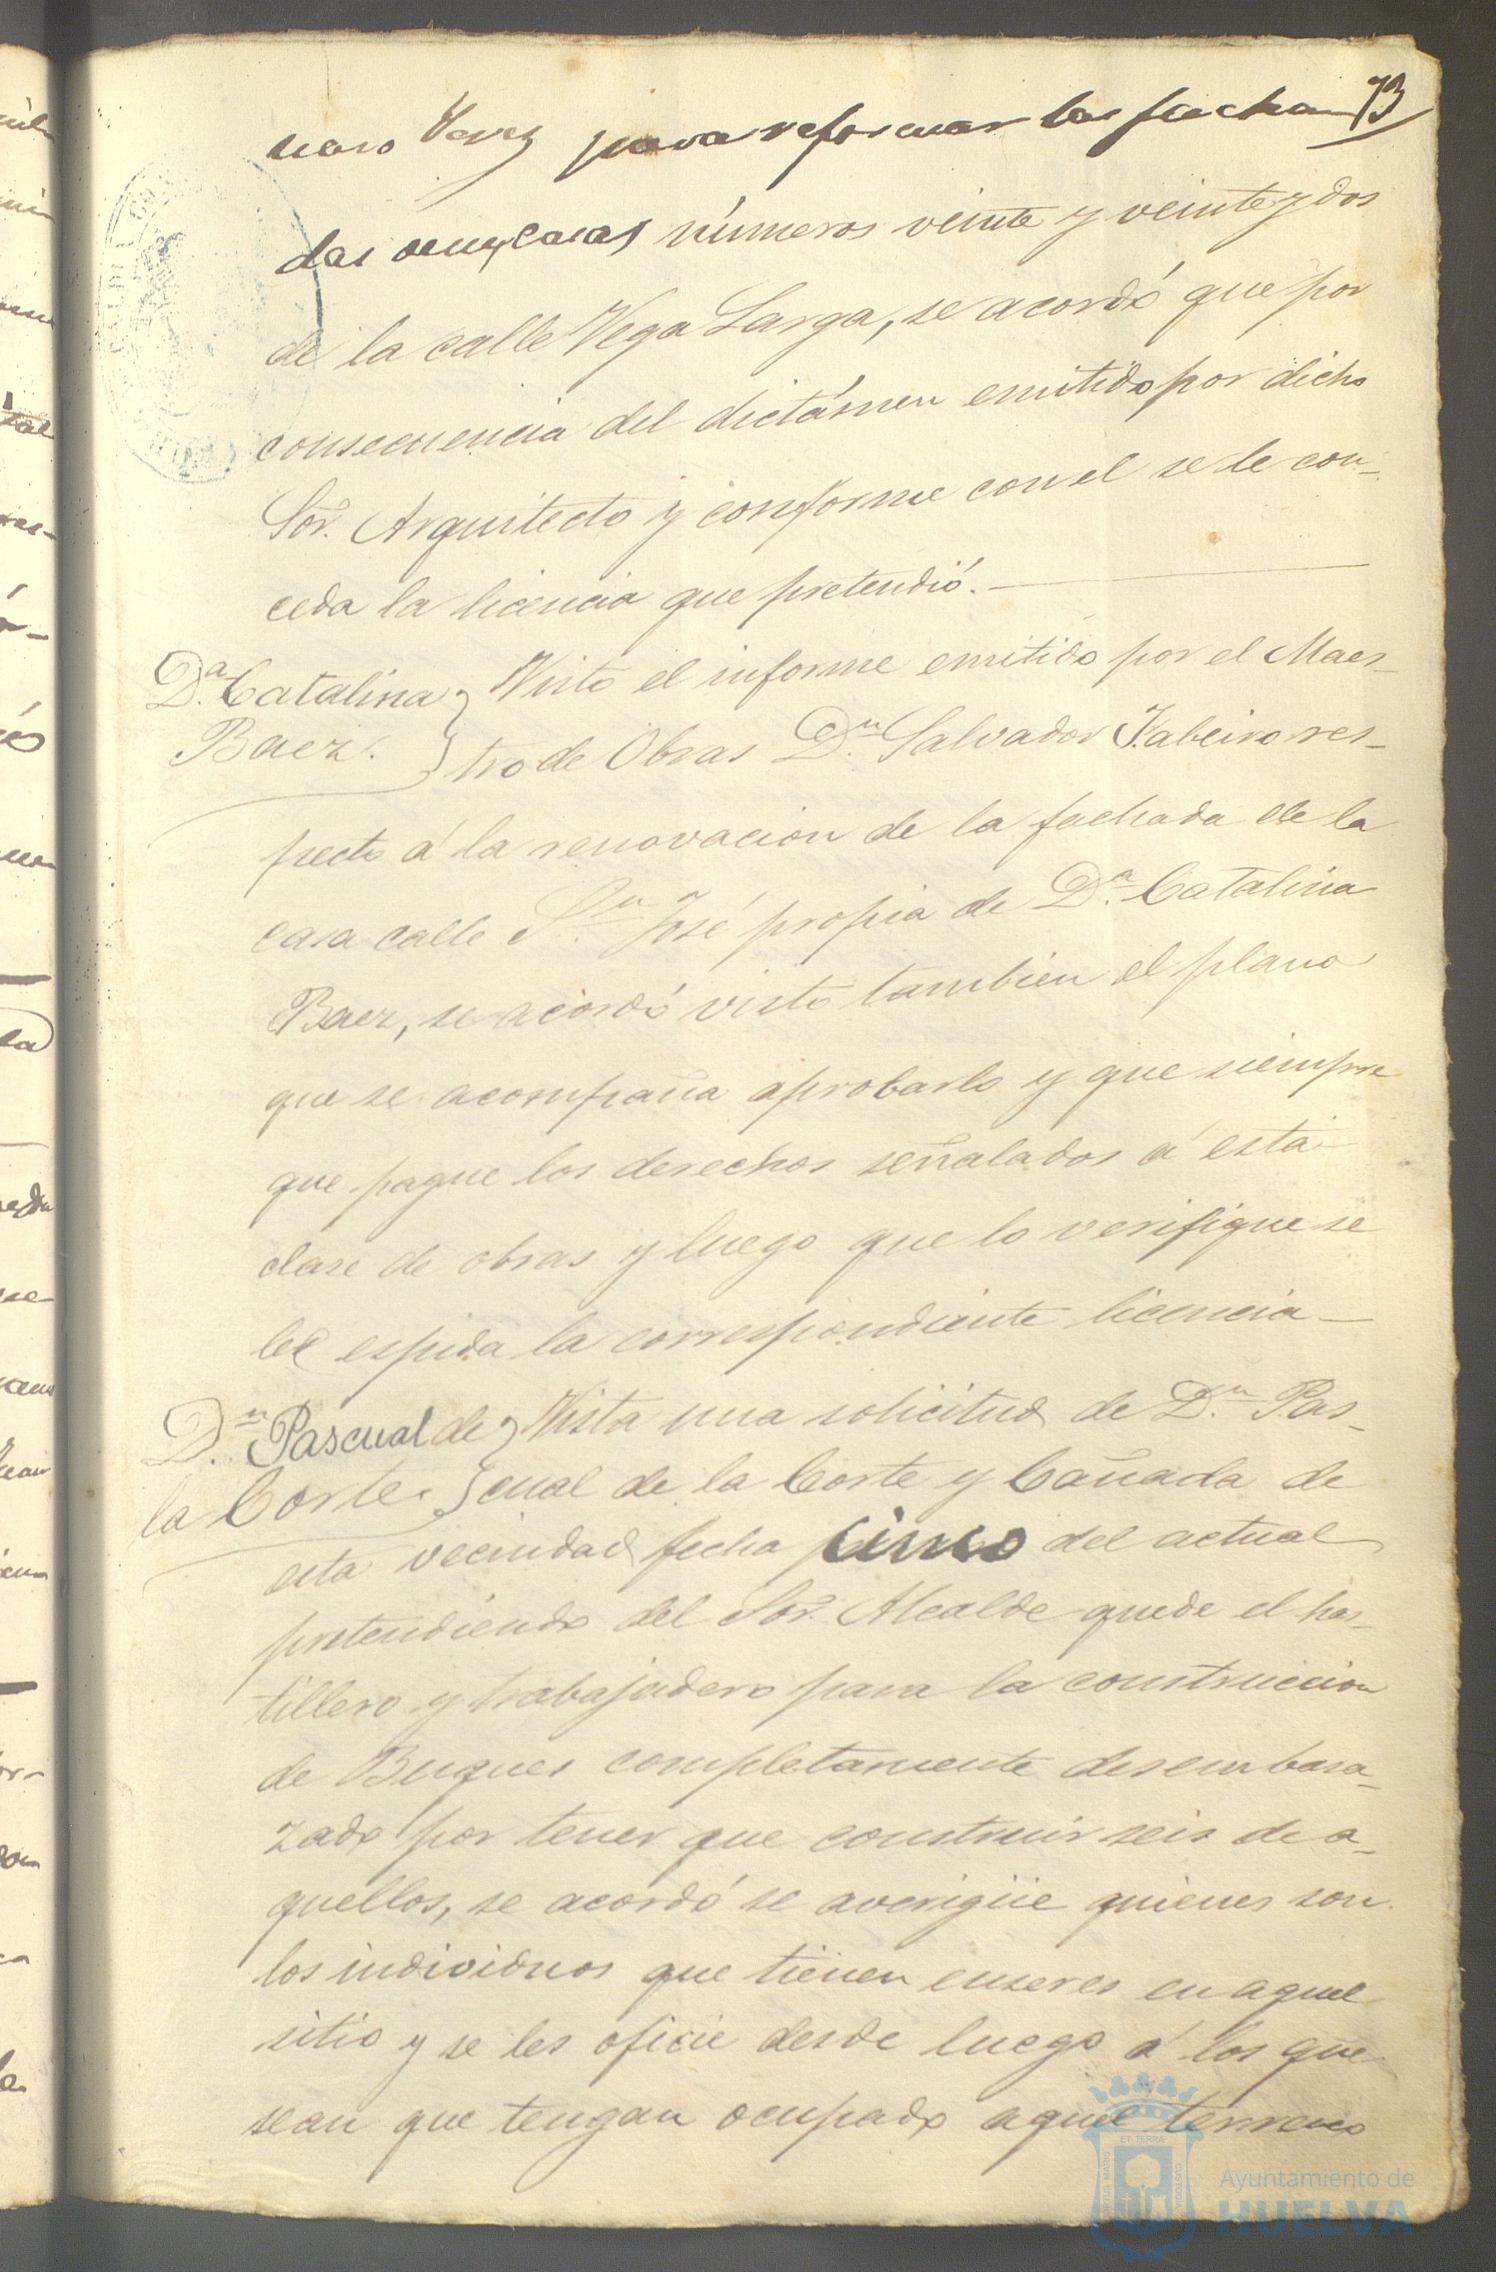 73
naro Perez para reformar las facha
das de sus casas números veinte y veinte y dos
de la calle Vega Larga, se acordó que por
consecuencia del dictámen emitido por dicho
Sor. Arquitecto y conforme con el se le con-
ceda la licencia que pretendió.
Da. Catalina
Baez.
Visto el informe emitido por el Maes-
tro de Obras Dn. Salvador Fabeiro res-
pecto á la renovacion de la fachada de la
casa calle Sn. José propia de Da. Catalina
Baez, se acordó visto tambien el plano
que se acompaña aprobarlo y que siempre
que pague los derechos señalados á esta
clase de obras y luego que lo verifique se
le espida la correspondiente licencia
Dn. Pascual de
la Corte.
Vista una solicitud de Dn. Pas-
cual de la Corte y Cañada de
esta vecindad fecha cinco del actual
pretendiendo del Sor. Alcalde quede el has-
tillero y trabajadero para la construccion
de Buques completamente desembara-
zado por tener que construir seis de a-
quellos, se acordó se averigüe quienes son
los individuos que tienen enseres en aquel
sitio y se les oficie desde luego á los que
sean que tengan ocupado aquel terreno
Ayuntamiento de
HUELVA